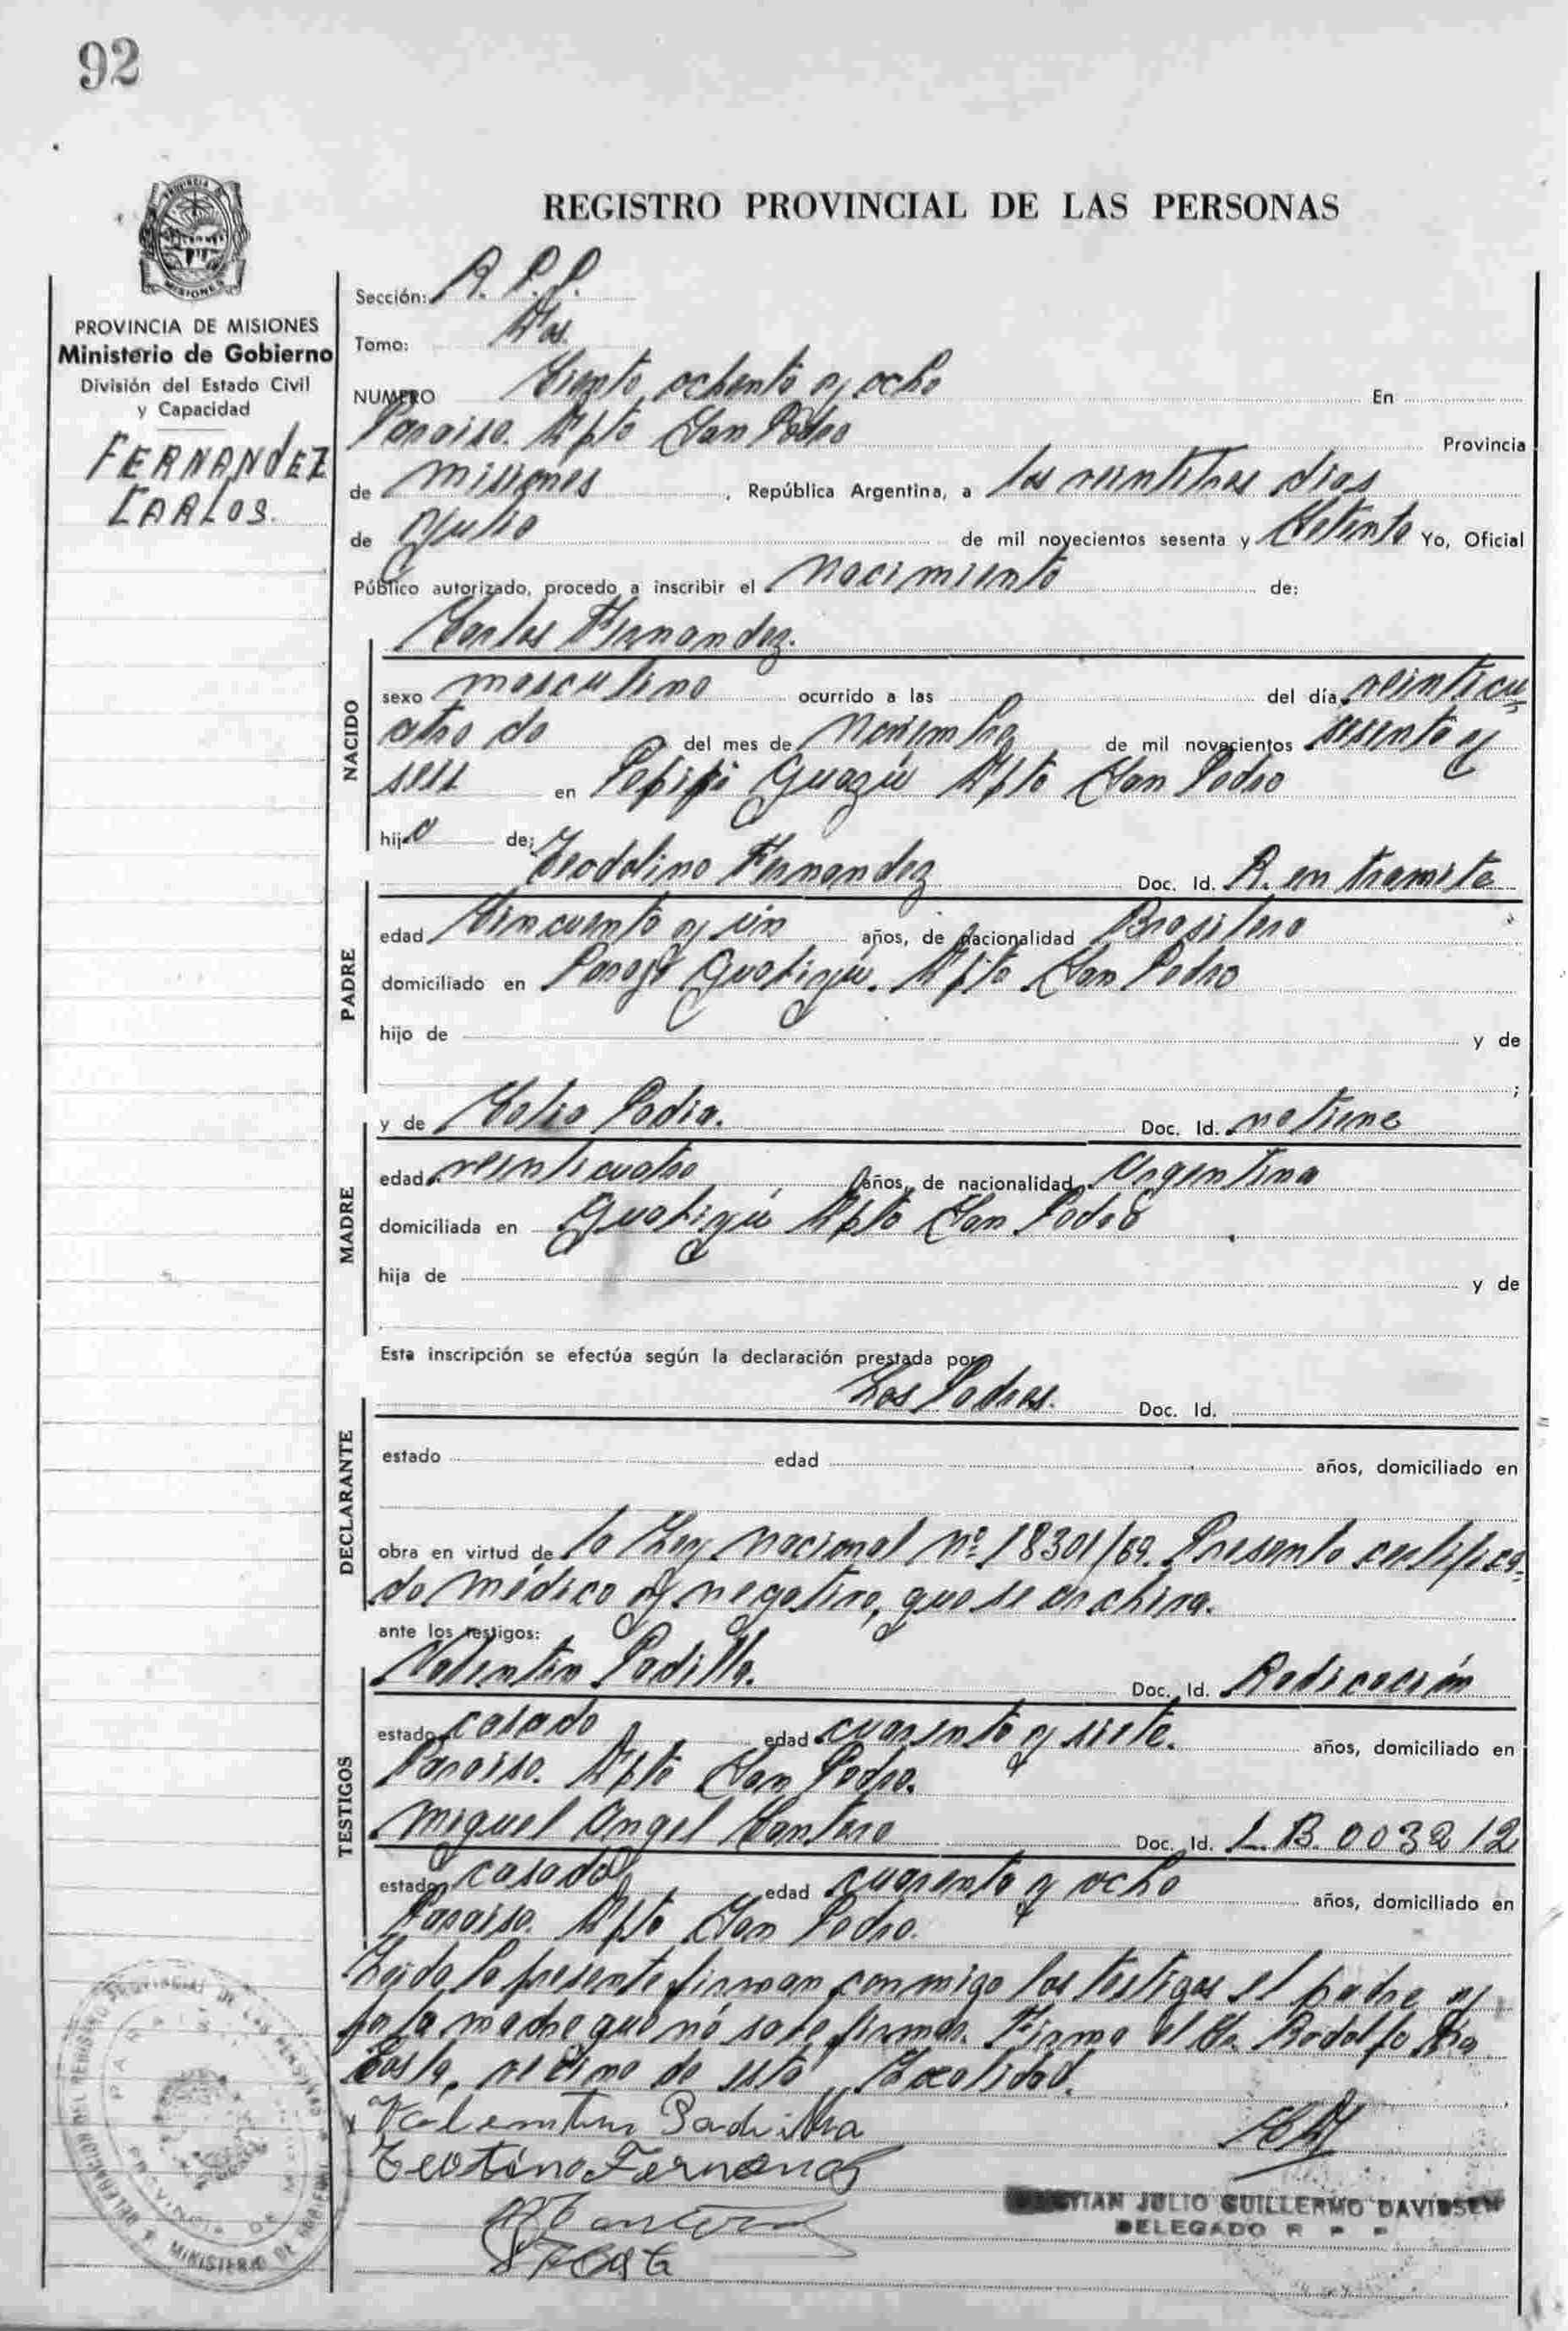 92
REGISTRO PROVINCIAL DE LAS PERSONAS
MISIONES
PROVINCIA DE MISIONES
Ministerio de Gobierno
División del Estado Civil
y Capacidad
FERNANDEZ
CARLOS.
Sección: R. P. P.
Tomo: Dos.
NUMERO Ciento ochenta y ocho En
Paraiso. Dpto San Pedro Provincia
de Misiones, República Argentina, a los veintitres dias
de Julio de mil novecientos sesenta y Setenta Yo, Oficial
Público autorizado, procedo a inscribir el Nacimiento de:
Carlos Fernandez.
NACIDO
sexo masculino ocurrido a las del día veinticu
atro de del mes de Noviembre de mil novecientos sesenta y
seis en Pepiri Guazú Dpto San Pedro
hijo de:
Teodolino Fernandez Doc. Id. R. en tramite
PADRE
edad Cincuenta y un años, de nacionalidad Brasilera
domiciliado en Paraje Dpto San Pedro
hijo de y de
;
y de Doc. Id. no tiene
MADRE
edad veinticuatro años, de nacionalidad Argentina
domiciliada en Dpto San Pedro
hija de y de
Esta inscripción se efectúa según la declaración prestada por
Los Padres. Doc. Id.
DECLARANTE
estado edad años, domiciliado en
obra en virtud de la Ley nacional nº 18301/69. Presento certifica-
do médico y negativo, que se archiva.
ante los testigos:
Valentin Padilla. Doc. Id. Radicación
TESTIGOS
estado casado edad cuarenta y siete. años, domiciliado en
Paraiso. Dpto San Pedro.
Miguel Angel Cantero Doc. Id. L.B. 0032212
estado casado edad cuarenta y ocho años, domiciliado en
Paraiso. Dpto San Pedro.
Leida la presente firman conmigo los testigos el padre y
por la madre que nó sabe firmar. Firma el Sr. Rodolfo
Costa, vecino de esta Localidad.
Valentin Padilla
Teotino Fernand
JULIO GUILLERMO DAVIDSEN
DELEGADO R P P